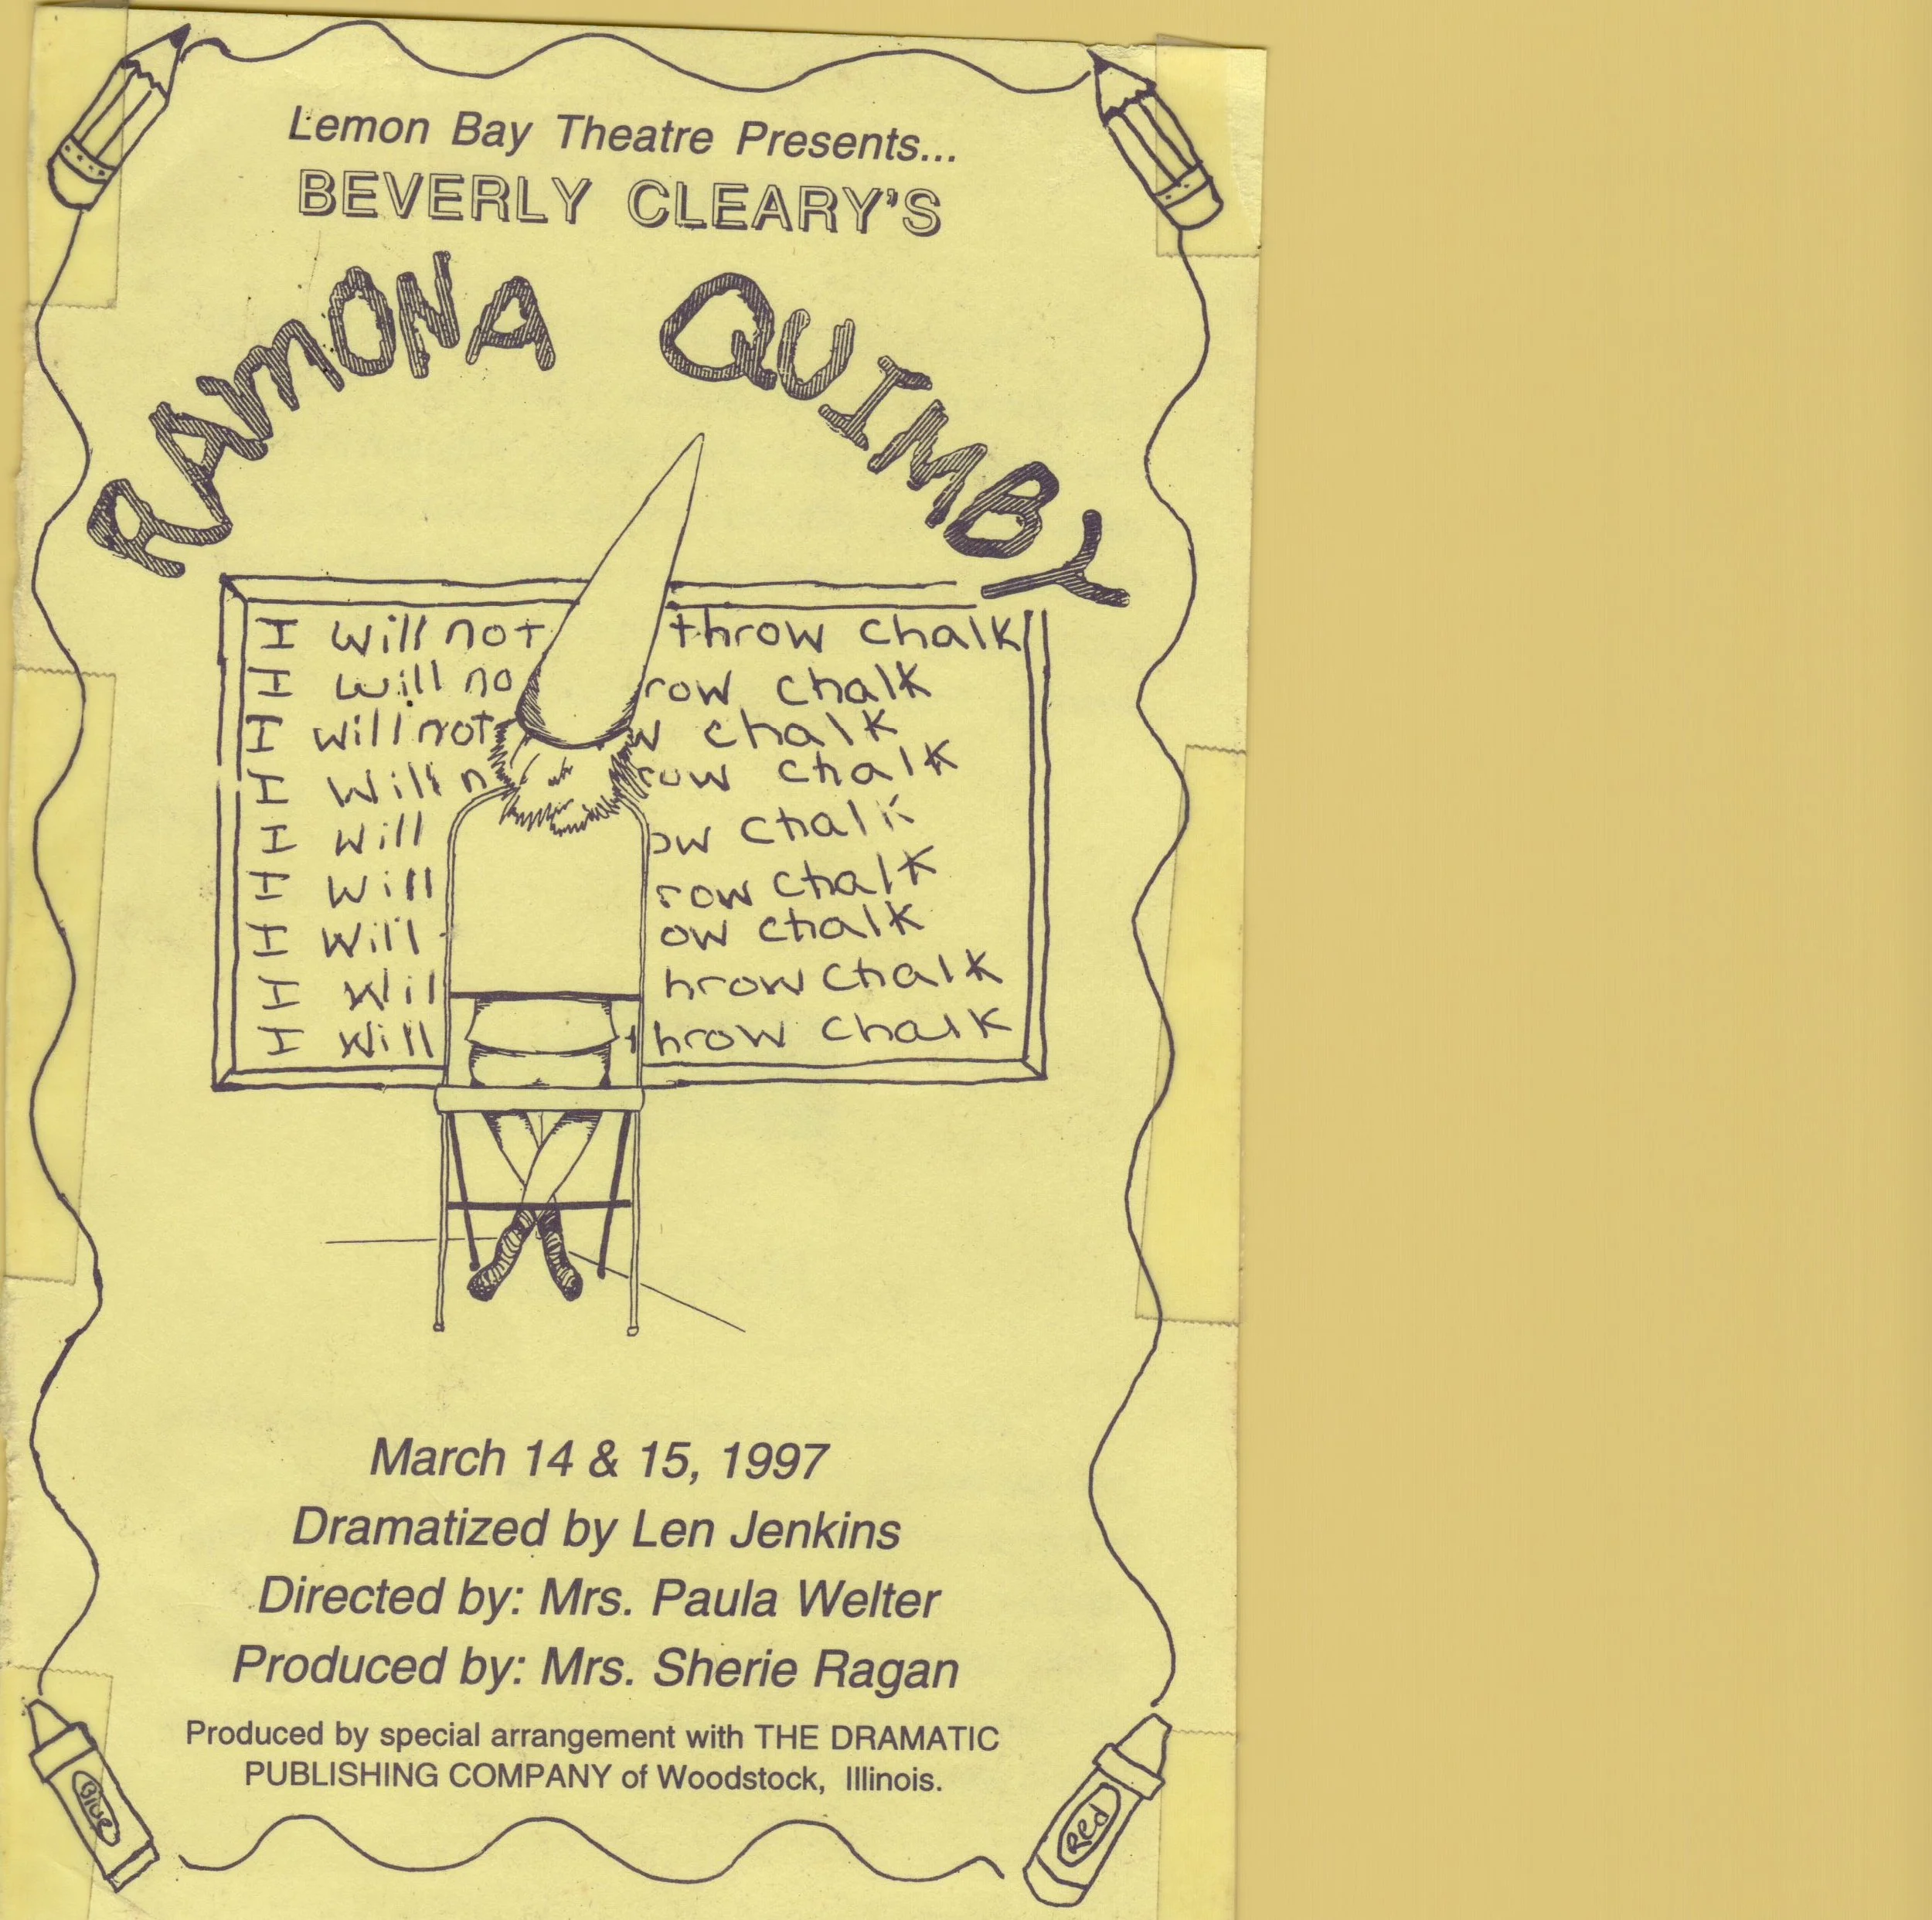 Lemon Bay Theatre Presents...
BEVERLY CLEARY'S
RAMONA QUIMBY
I will not throw chalk
I will no row chalk
I will not w chalk
I will n row chalk
I will ow chalk
I will row chalk
I will ow chalk
I wil hrow chalk
I will throw chalk
March 14 & 15, 1997
Dramatized by Len Jenkins
Directed by: Mrs. Paula Welter
Produced by: Mrs. Sherie Ragan
Produced by special arrangement with THE DRAMATIC
PUBLISHING COMPANY of Woodstock, Illinois.
Blue
Red